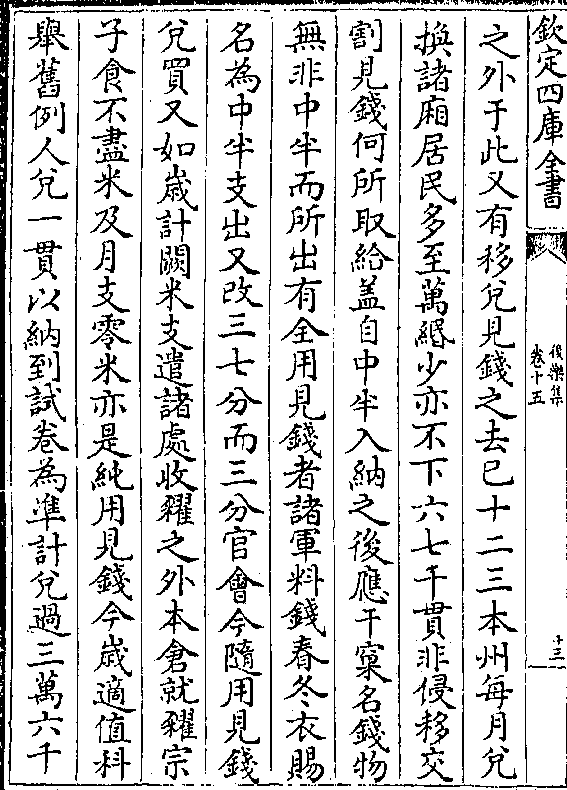 欽定四庫全書
後樂集
卷十五
十三
之外于此又有移兌見錢之去已十二三本州每月兌
換諸廂居民多至萬緡少亦不下六七千貫非侵移交
割見錢何所取給盖自中半入納之後應干窠名錢物
無非中半而所出有全用見錢者諸軍料錢春冬衣賜
名為中半支出又改三七分而三分官會今隨用見錢
兌買又如歲計闕米支遣諸處收糴之外本倉就糴宗
子食不盡米及月支零米亦是純用見錢今歲適值科
舉舊例人兌一貫以納到試卷為準計兌過三萬六千